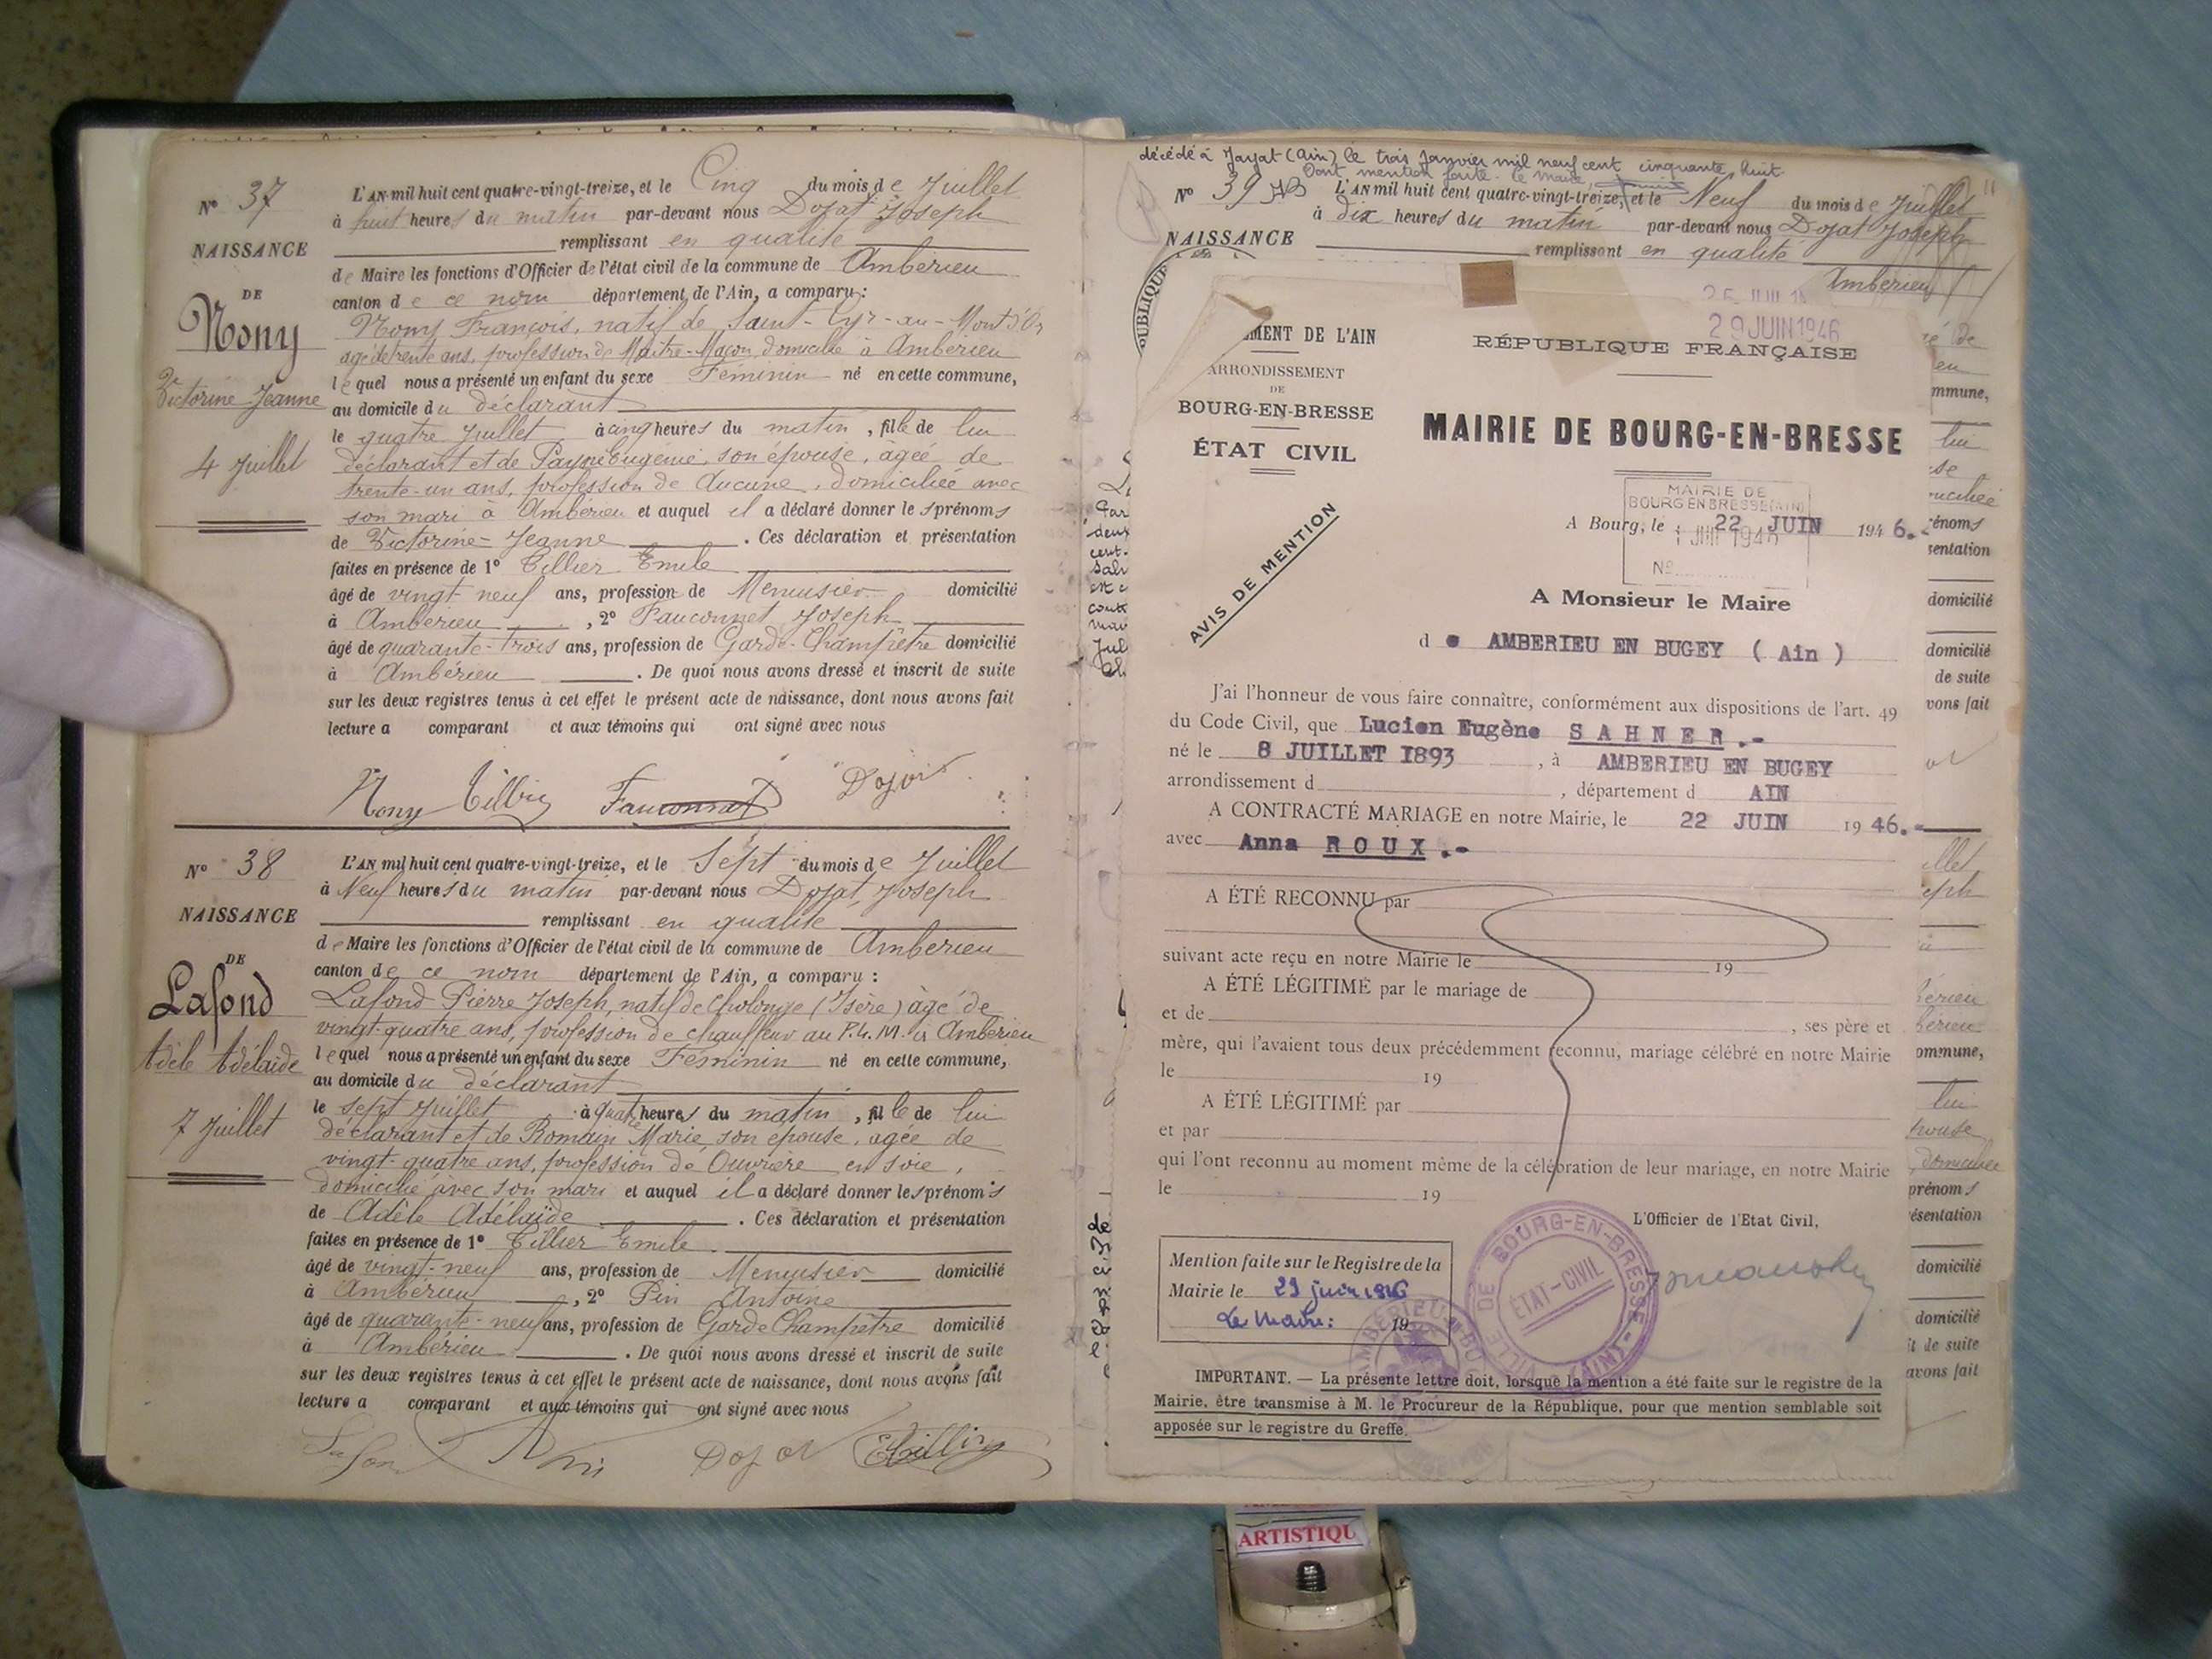 N° 37
NAISSANCE
DE
Nony
Victorine Jeanne
4 Juillet
L'AN mil huit cent quatre-vingt-treize, et le Cinq du mois de Juillet
à huit heures du matin par-devant nous Dojat Joseph
remplissant en qualité
de Maire les fonctions d'Officier de l'état civil de la commune de Ambérieu
canton de ce nom département de l'Ain, a comparu :
Nony François, natif de Saint-Cyr-au-Mont d'Or
âgé de trente ans, profession de Maître-Maçon domicilié à Ambérieu
lequel nous a présenté un enfant du sexe Féminin né en cette commune,
au domicile du déclarant
le quatre Juillet à cinq heures du matin, fille de lui
déclarant et de Payne Eugénie, son épouse, âgée de
trente-un ans, profession de Aucune, domiciliée avec
son mari à Ambérieu et auquel il a déclaré donner les prénoms
de Victorine-Jeanne. Ces déclaration et présentation
faites en présence de 1° Tillier Emile
âgé de vingt neuf ans, profession de Menuisier domicilié
à Ambérieu, 2° Fauconnet Joseph
âgé de quarante-trois ans, profession de Garde-Champêtre domicilié
à Ambérieu. De quoi nous avons dressé et inscrit de suite
sur les deux registres tenus à cet effet le présent acte de naissance, dont nous avons fait
lecture a comparant et aux témoins qui ont signé avec nous
Nony Tillier Fauconnet Dojat
N° 38
NAISSANCE
DE
Lafond
Adèle Adélaïde
7 Juillet
L'AN mil huit cent quatre-vingt-treize, et le Sept du mois de Juillet
à Neuf heures du matin par-devant nous Dojat Joseph
remplissant en qualité
de Maire les fonctions d'Officier de l'état civil de la commune de Ambérieu
canton de ce nom département de l'Ain, a comparu :
Lafond Pierre Joseph, natif de Cholonge (Isère) âgé de
vingt-quatre ans, profession de chauffeur au P.L.M. à Ambérieu
lequel nous a présenté un enfant du sexe Féminin né en cette commune,
au domicile du déclarant
le sept Juillet à quatre heures du matin, fille de lui
déclarant et de Romain Marie, son épouse, âgée de
vingt-quatre ans, profession de Ouvrière en soie,
domicilié avec son mari et auquel il a déclaré donner les prénoms
de Adèle Adélaïde. Ces déclaration et présentation
faites en présence de 1° Tillier Emile
âgé de vingt-neuf ans, profession de Menuisier domicilié
à Ambérieu, 2° Pin Antoine
âgé de quarante-neuf ans, profession de Garde Champêtre domicilié
à Ambérieu. De quoi nous avons dressé et inscrit de suite
sur les deux registres tenus à cet effet le présent acte de naissance, dont nous avons fait
lecture a comparant et aux témoins qui ont signé avec nous
Lafond Pin Dojat Tillier
décédé à Jayat (Ain) le trois janvier mil neuf cent cinquante huit
Dont mention faite. Le Maire,
N° 39
NAISSANCE
L'AN mil huit cent quatre-vingt-treize, et le Neuf du mois de Juillet
à dix heures du matin par-devant nous Dojat Joseph
remplissant en qualité
Ambérieu
29 JUIN 1946
MENT DE L'AIN
ARRONDISSEMENT
DE
BOURG-EN-BRESSE
ÉTAT CIVIL
AVIS DE MENTION
RÉPUBLIQUE FRANÇAISE
MAIRIE DE BOURG-EN-BRESSE
MAIRIE DE
BOURG EN BRESSE (AIN)
A Bourg, le 22 JUIN 1946.-
N°
A Monsieur le Maire
de AMBERIEU EN BUGEY ( Ain )
J'ai l'honneur de vous faire connaître, conformément aux dispositions de l'art. 49
du Code Civil, que Lucien Eugène SAHNER.-
né le 8 JUILLET 1893, à AMBERIEU EN BUGEY
arrondissement d, département d AIN
A CONTRACTÉ MARIAGE en notre Mairie, le 22 JUIN 1946.-
avec Anna ROUX.-
A ÉTÉ RECONNU par
suivant acte reçu en notre Mairie le 19
A ÉTÉ LÉGITIMÉ par le mariage de
et de, ses père et
mère, qui l'avaient tous deux précédemment reconnu, mariage célébré en notre Mairie
le 19
A ÉTÉ LÉGITIMÉ par
et par
qui l'ont reconnu au moment même de la célébration de leur mariage, en notre Mairie
le 19
L'Officier de l'Etat Civil,
VILLE DE BOURG-EN-BRESSE (AIN)
ETAT-CIVIL
Mention faite sur le Registre de la
Mairie le 29 juin 1946
Le Maire: 19
IMPORTANT. — La présente lettre doit, lorsque la mention a été faite sur le registre de la
Mairie, être transmise à M. le Procureur de la République, pour que mention semblable soit
apposée sur le registre du Greffe.
mmune,
lui
énoms
sentation
domicilié
domicilié
de suite
vons fait
ommune,
lui
domiciliée
prénoms
ésentation
domicilié
domicilié
it de suite
avons fait
ARTISTIQU